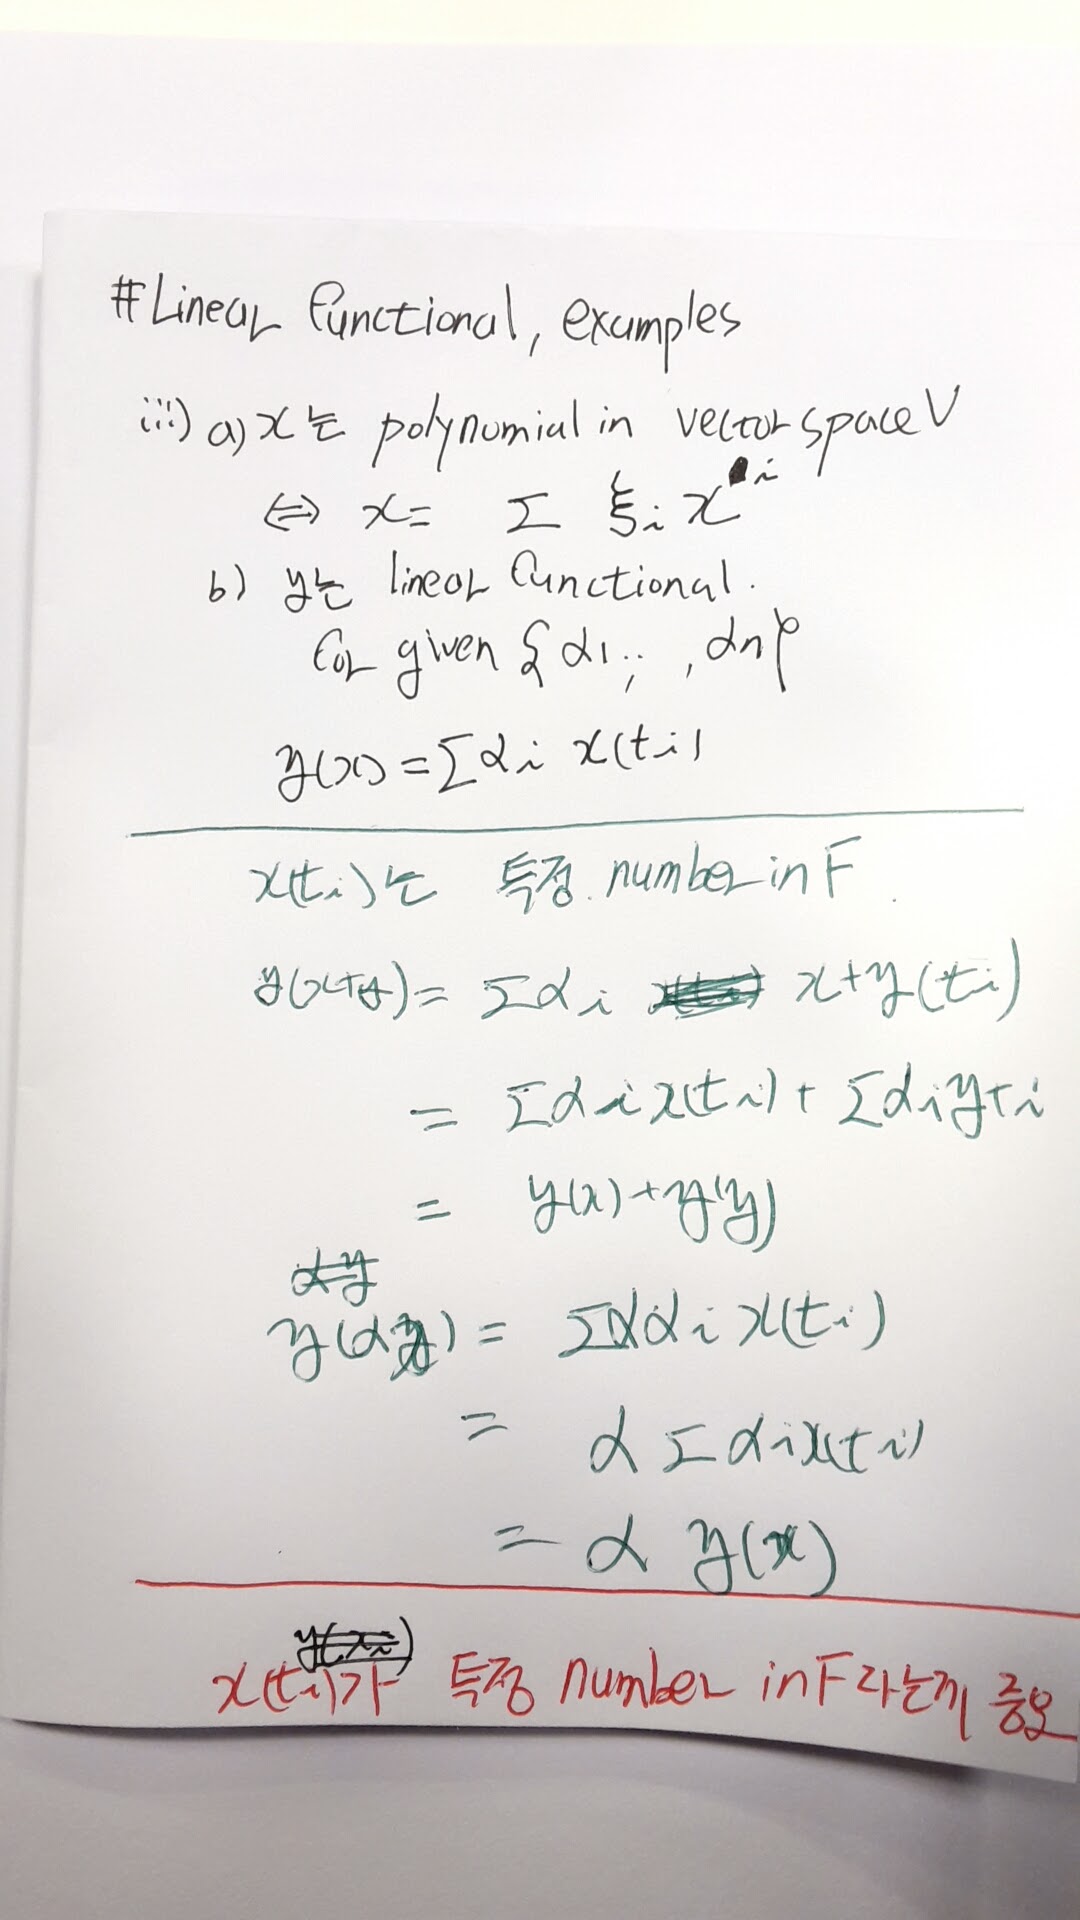 #Linear functional, examples
iii) a) x는 polynomial in vector space V
⇔ x = Σ ξi x^i
b) y는 linear functional.
for given {α1, , , αn}
y(x) = Σαi x(ti)
x(ti)는 특정 number in F
y(x+y) = Σαi x+y(ti)
= Σαi x(ti) + Σαi y ti
= y(x) + y(y)
y(αx) = Σααi x(ti)
= α Σ αi x(ti)
= α y(x)
x(ti)가 특정 number in F라는게 중요